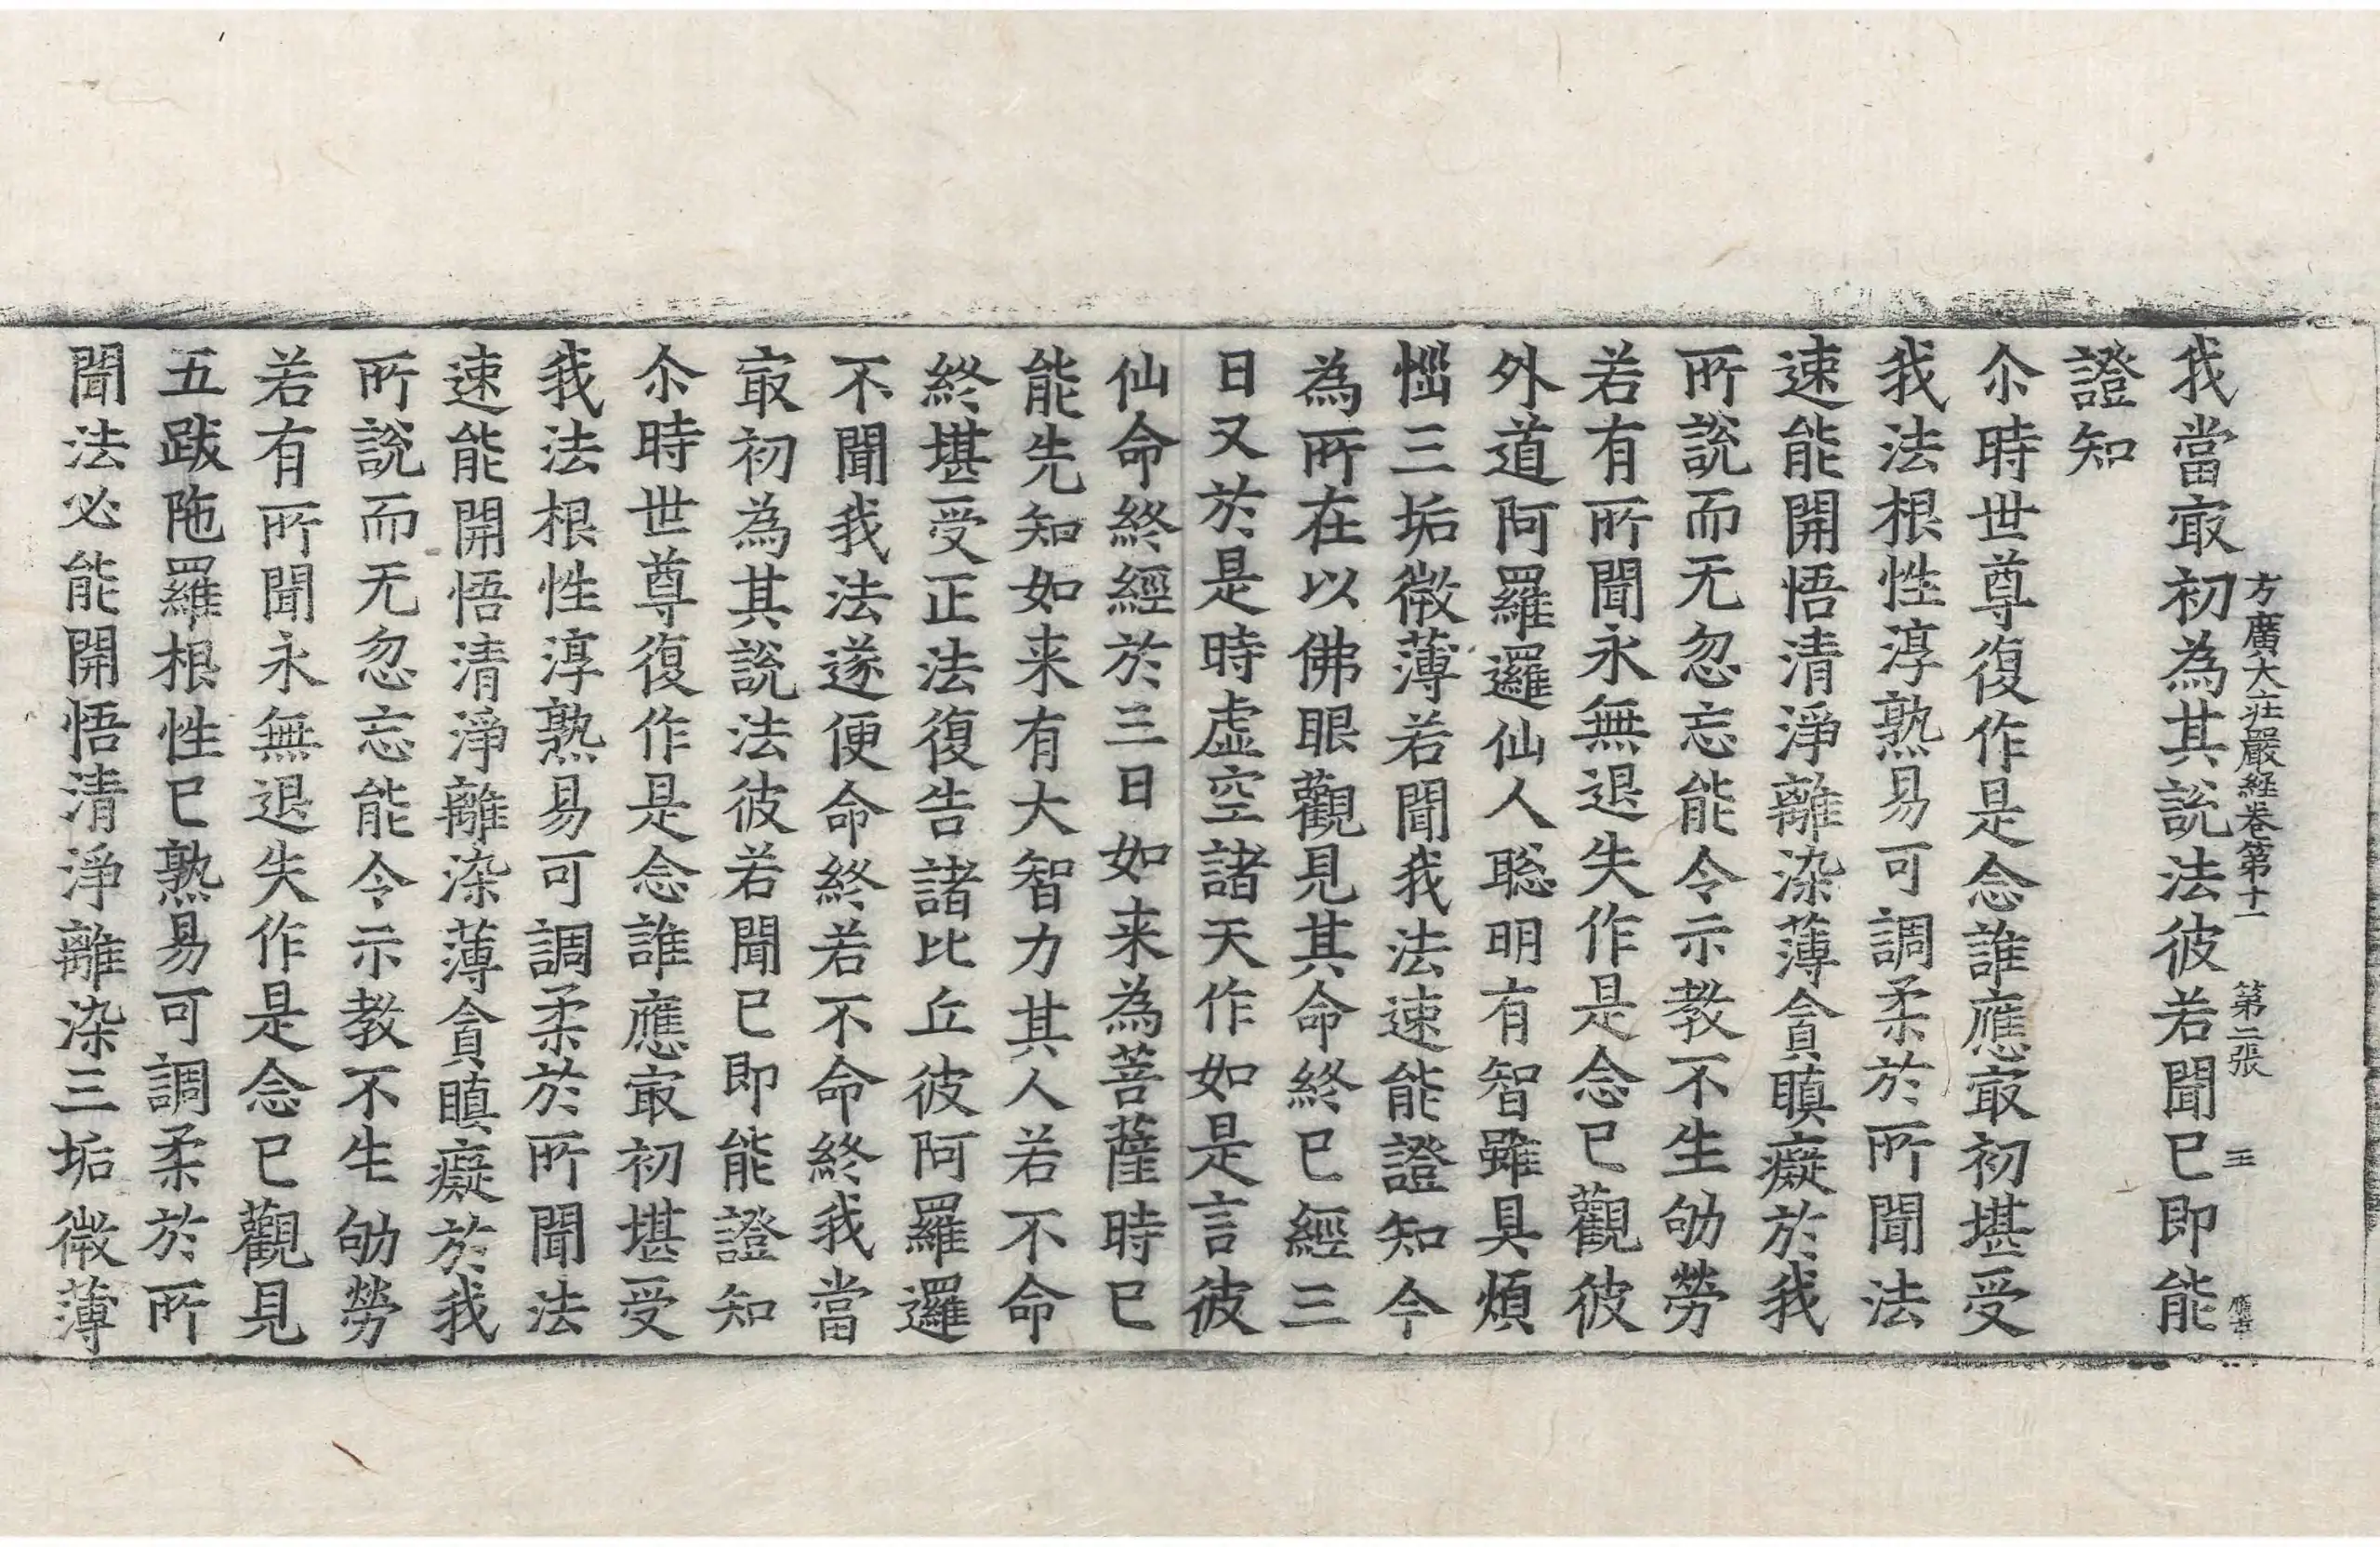 方廣大庄嚴經卷第十一　第二張　王
我當㝡初為其說法彼若聞已即能
證知
尒時世尊復作是念誰應㝡初堪受
我法根性淳熟易可調柔於所聞法
速能開悟清淨離染薄貪瞋癡於我
所說而无忽忘能令示教不生劬勞
若有所聞永無退失作是念已觀彼
外道阿羅邏仙人聡明有智雖具煩
惱三垢微薄若聞我法速能證知今
為所在以佛眼觀見其命終已經三
日又於是時虛空諸天作如是言彼
仙命終經於三日如来為菩薩時已
能先知如来有大智力其人若不命
終堪受正法復告諸比丘彼阿羅邏
不聞我法遂便命終若不命終我當
㝡初為其說法彼若聞已即能證知
尒時世尊復作是念誰應㝡初堪受
我法根性淳熟易可調柔於所聞法
速能開悟清淨離染薄貪瞋癡於我
所說而无忽忘能令示教不生劬勞
若有所聞永無退失作是念已觀見
五跋陁羅根性已熟易可調柔於所
聞法必能開悟清淨離染三垢微薄